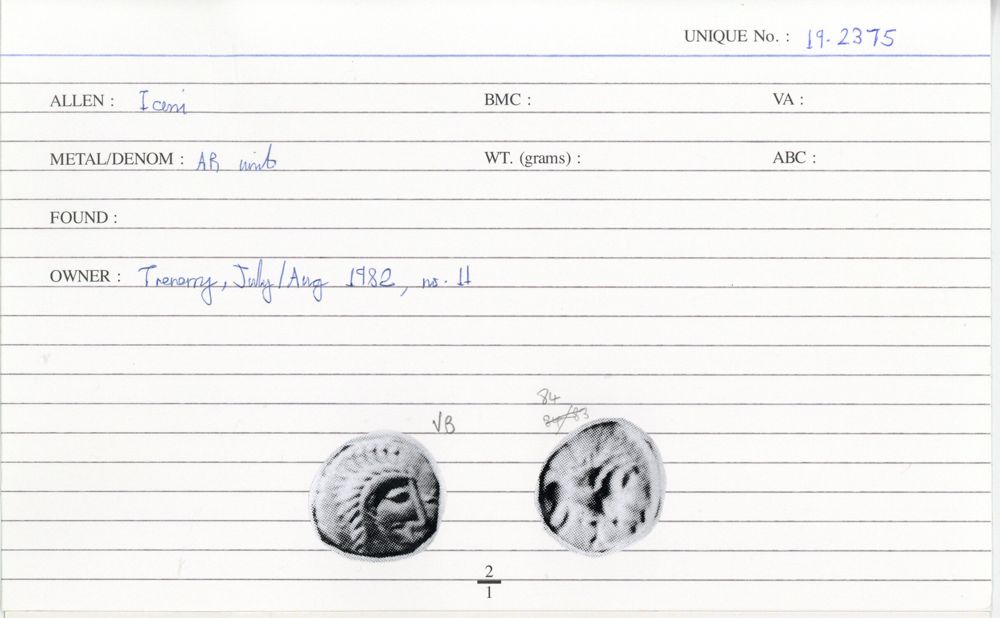 UNIQUE No. : 19-2375
ALLEN : Iceni BMC : VA :
METAL/DENOM : AR unit WT. (grams) : ABC :
FOUND :
OWNER : Trenerry, July/Aug 1982, no. 11
84
VB 84/83
2
1